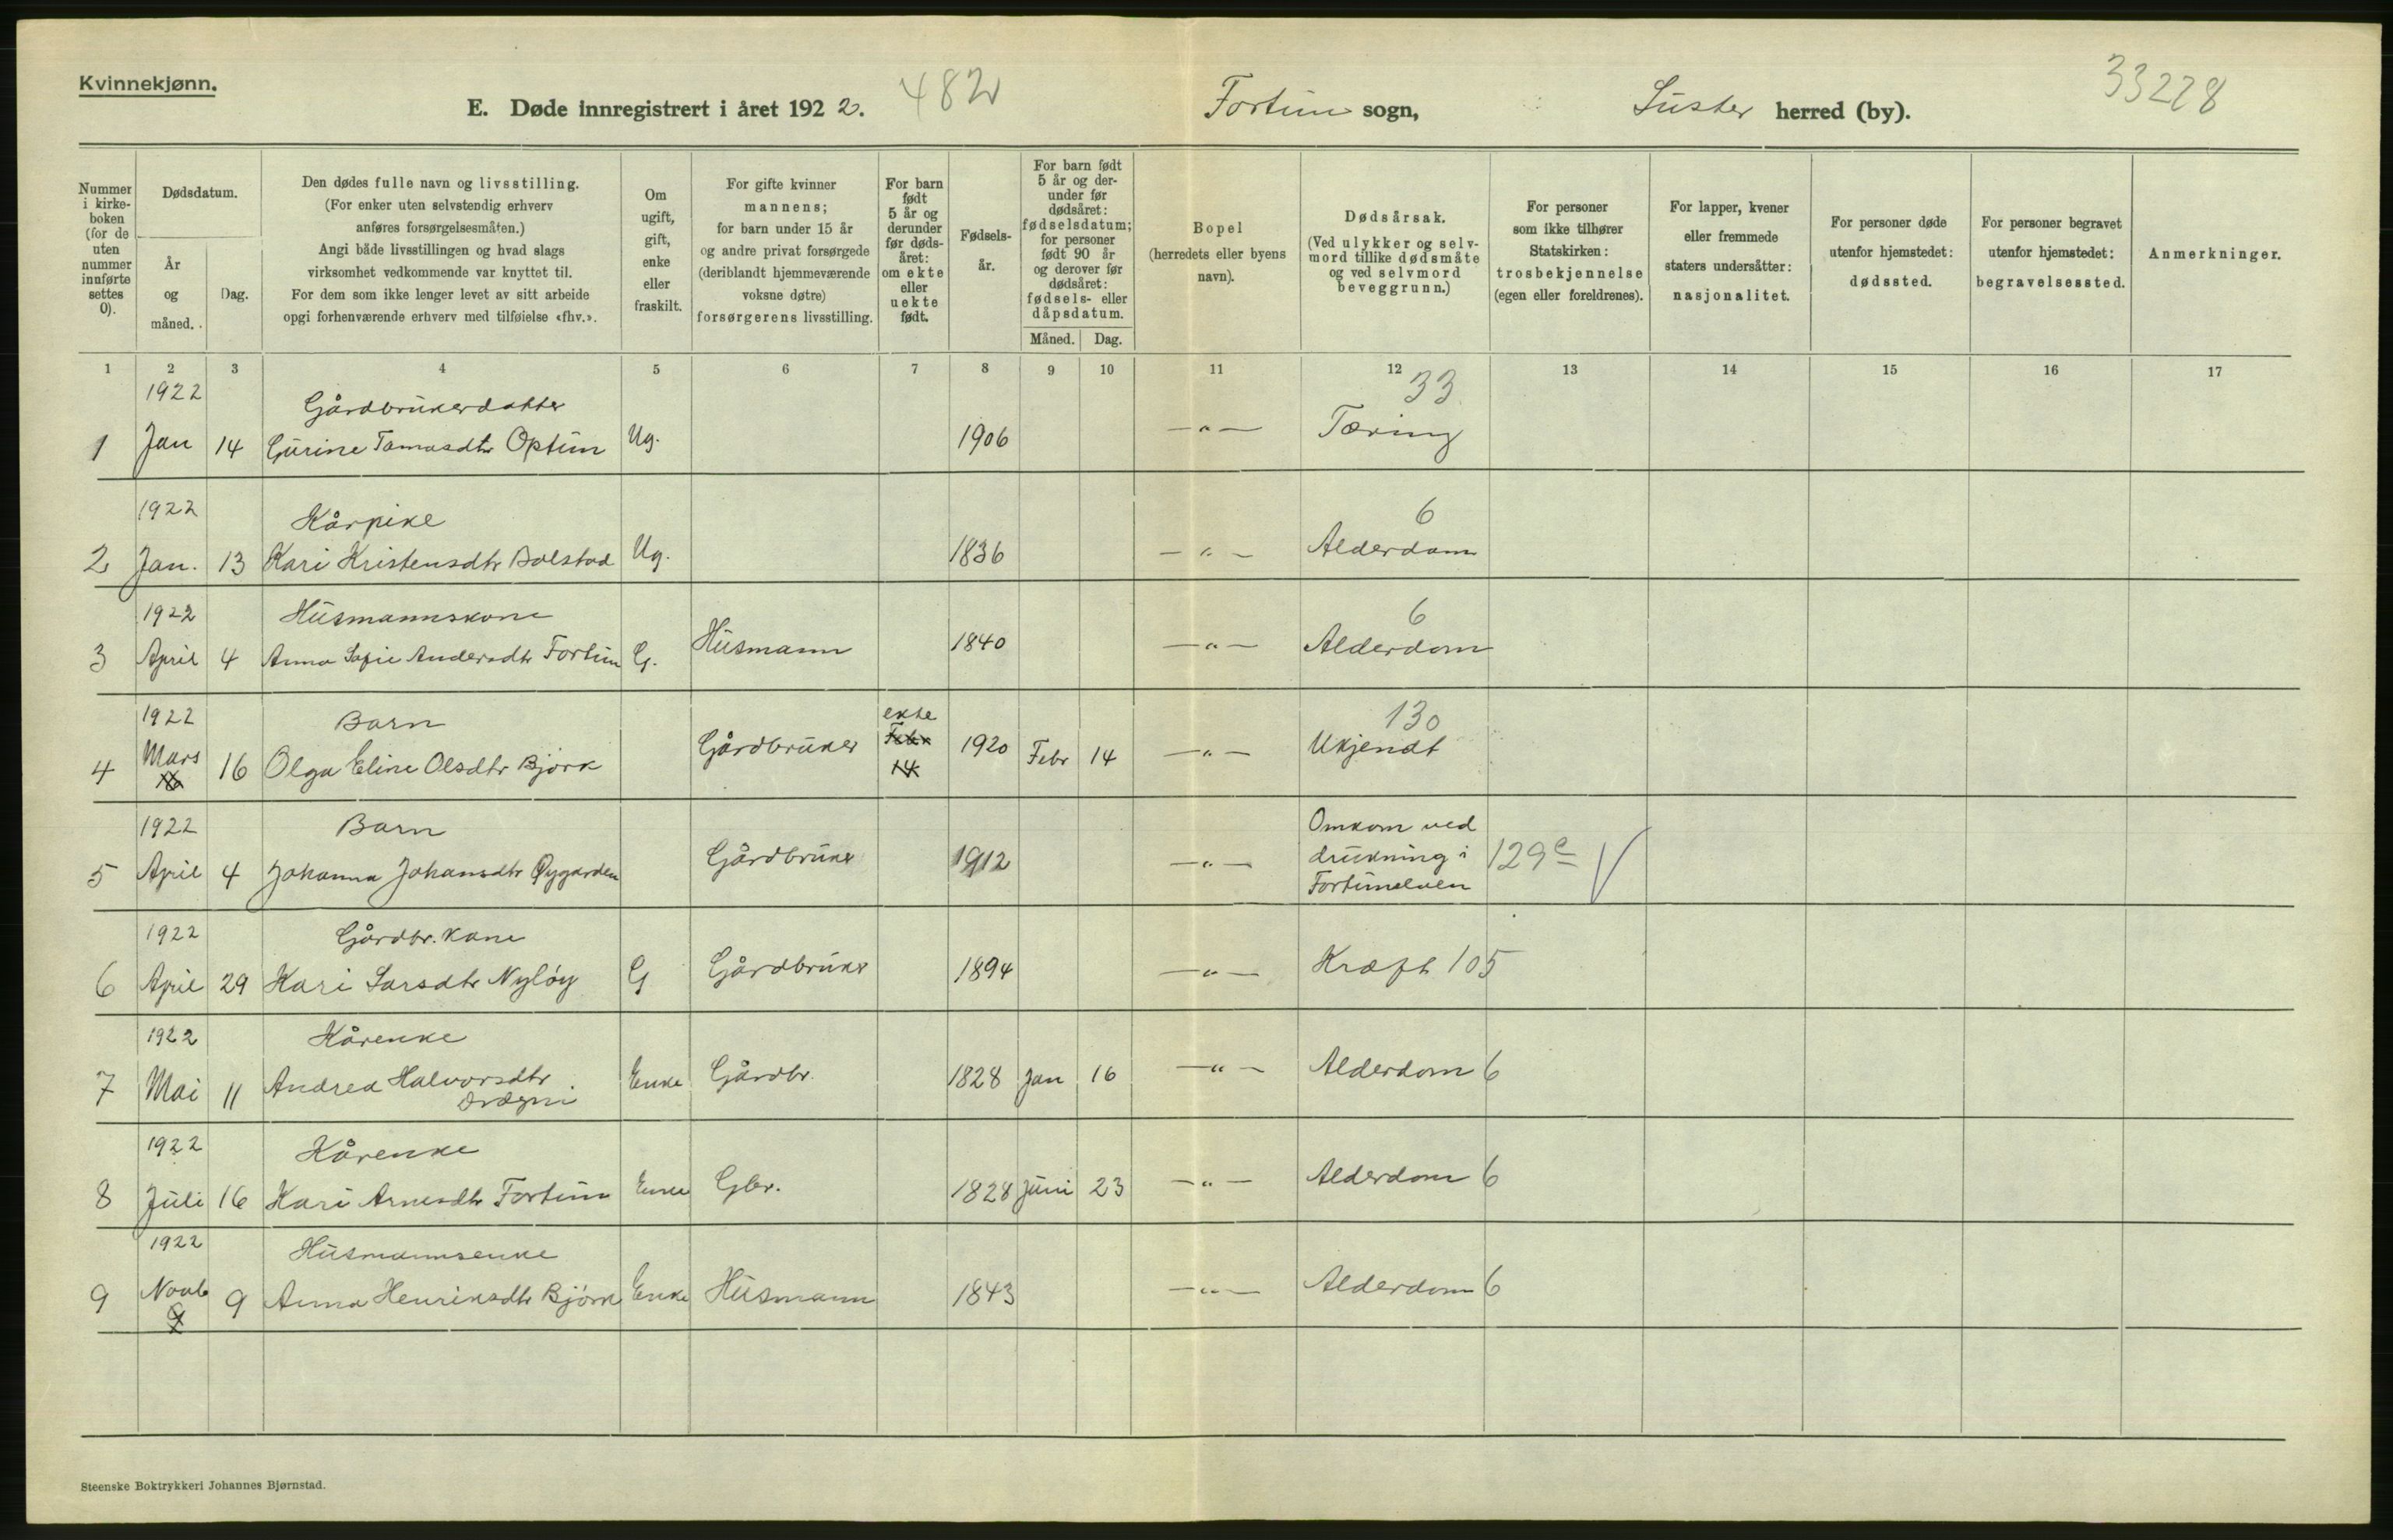 Kvinnekjønn.
E. Døde innregistrert i året 1922. 482 Fortun sogn, Luster herred (by). 33228
Nummer i kirke-boken (for de uten nummer innførte settes 0).
Dødsdatum.
År og måned.
Dag.
Den dødes fulle navn og livsstilling.
(For enker uten selvstendig erhverv
anføres forsørgelsesmåten.)
Angi både livsstillingen og hvad slags
virksomhet vedkommende var knyttet til.
For dem som ikke lenger levet av sitt arbeide
opgi forhenværende erhverv med tilføielse «fhv.».
Om ugift, gift, enke eller fraskilt.
For gifte kvinner
mannens;
for barn under 15 år
og andre privat forsørgede
(deriblandt hjemmeværende
voksne døtre)
forsørgerens livsstilling.
For barn født 5 år og derunder før døds-året: om ekte eller uekte født.
Fødsels-år.
For barn født 5 år og der-under før dødsåret: fødselsdatum; for personer født 90 år og derover før dødsåret: fødsels- eller dåpsdatum.
Måned. Dag.
Bopel
(herredets eller byens
navn).
Dødsårsak.
(Ved ulykker og selv-
mord tillike dødsmåte
og ved selvmord
beveggrunn.)
For personer
som ikke tilhører
Statskirken:
trosbekjennelse
(egen eller foreldrenes).
For lapper, kvener
eller fremmede
staters undersåtter:
nasjonalitet.
For personer døde
utenfor hjemstedet:
dødssted.
For personer begravet
utenfor hjemstedet:
begravelsessted.
Anmerkninger.
1 2 3 4 5 6 7 8 9 10 11 12 13 14 15 16 17
1922 Gårdbrukerdatter 33
1 Jan 14 Gurine Tomasdtr Optun Ug. 1906 —"— Tæring
1922 Kårpike 6
2 Jan. 13 Kari Kristensdtr Bolstad Ug. 1836 —"— Alderdom
1922 Husmannskone 6
3 April 4 Anna Sofie Andersdtr Fortun G. Husmann 1840 —"— Alderdom
1922 Barn ekte 130
4 Mars 16 Olga Eline Olsdtr Bjørk Gårdbruker Febr 14 1920 Febr 14 —"— Ukjendt
16
1922 Barn Omkom ved
5 April 4 Johanna Johansdtr Øygarden Gårdbruker 1912 —"— drukning i 129e
Fortunelven
1922 Gårdbr. kone
6 April 29 Kari Larsdtr Nyløy G Gårdbruker 1894 —"— Kræft 105
1922 Kårenke
7 Mai 11 Andrea Halvorsdtr Enke Gårdbr. 1828 Jan 16 —"— Alderdom 6
1922 Kårenke
8 Juli 16 Kari Arnesdtr Fortun Enke Gbr. 1828 Juni 23 —"— Alderdom 6
1922 Husmannsenke
9 Novb 9 Anna Henriksdtr Bjørk Enke Husmann 1843 —"— Alderdom 6
9
Steenske Boktrykkeri Johannes Bjørnstad.